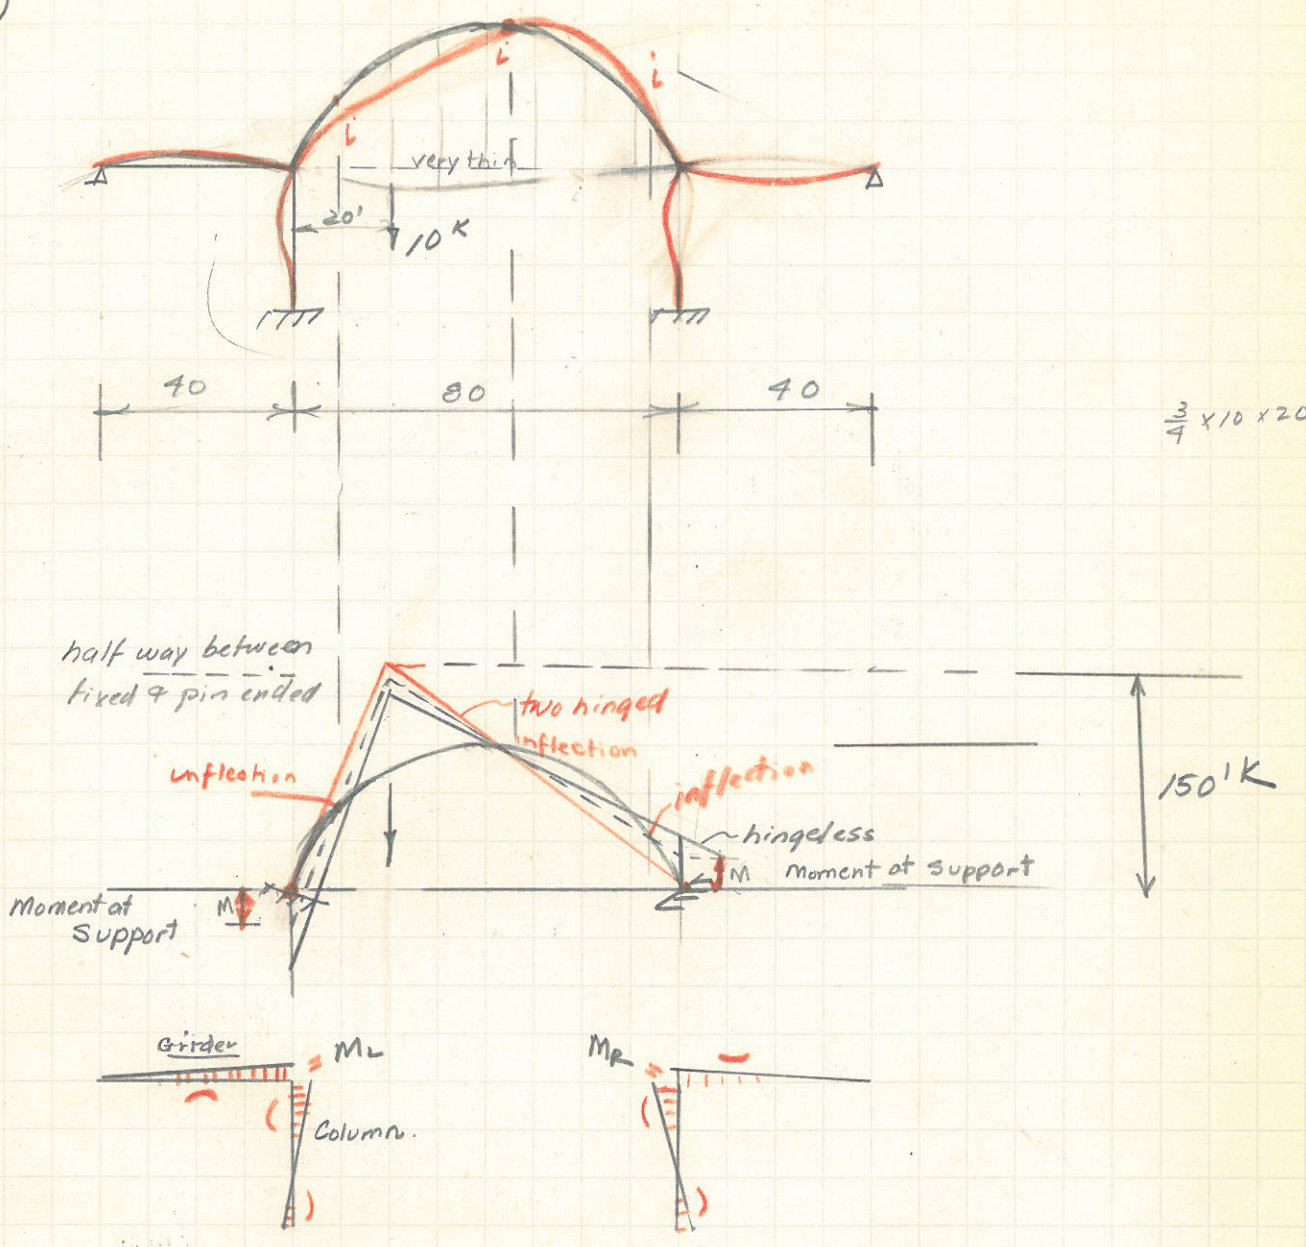 i
i
i
very thin
20'
10 K
40
80
40
3/4 x 10 x 20
half way between
fixed & pin ended
two hinged
inflection
inflection
inflection
150 'K
hingeless
M
Moment at support
Moment at
Support
M
Girder
= ML
MR =
Column.